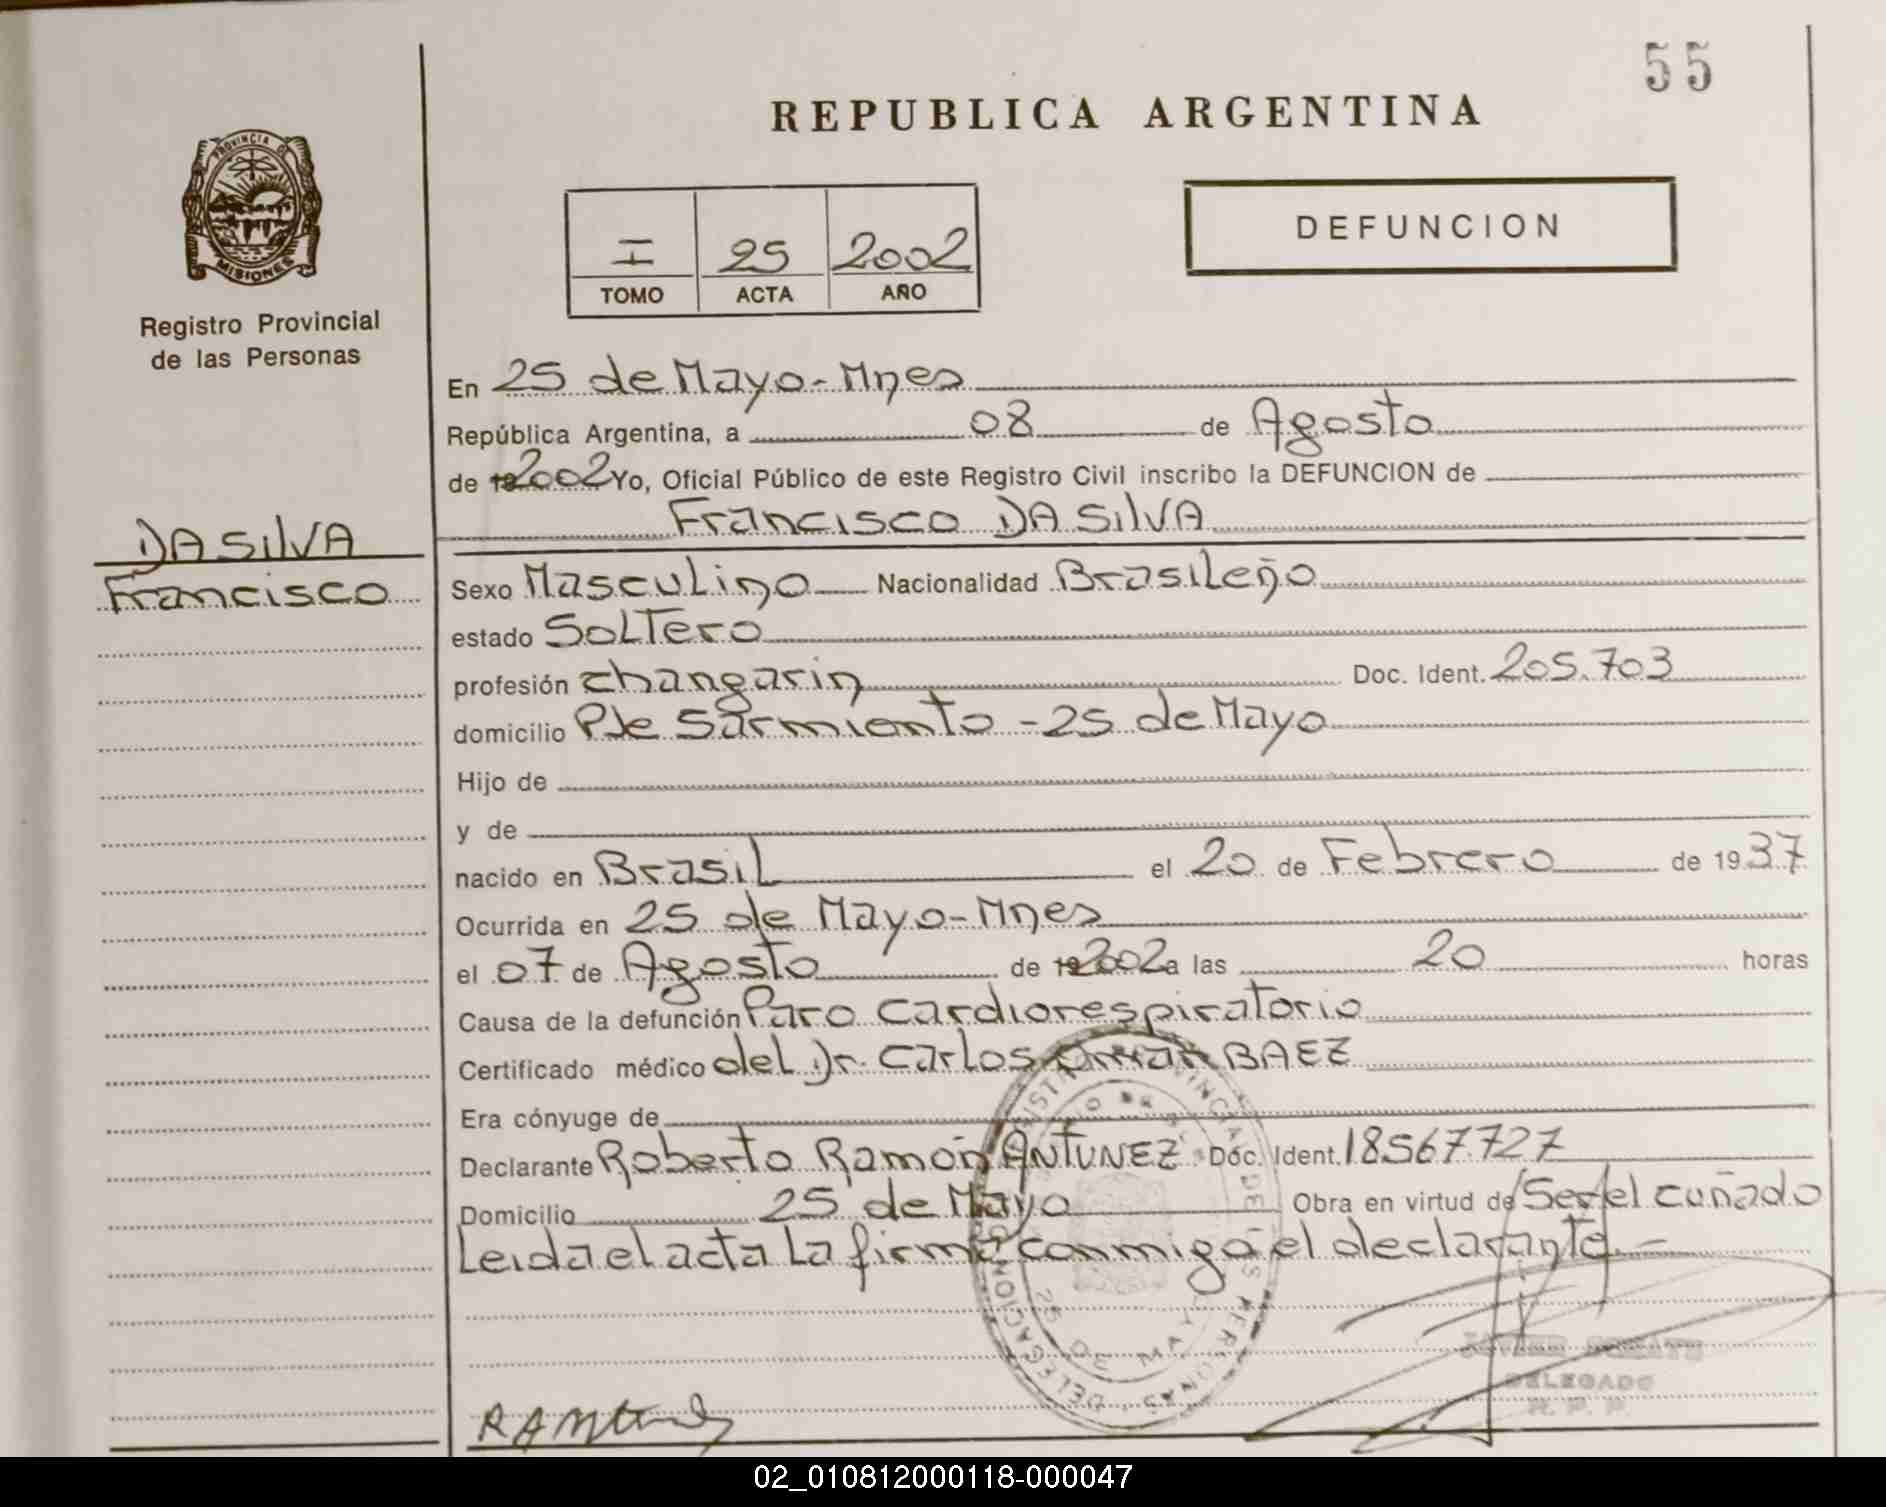 55
REPUBLICA ARGENTINA
PROVINCIA DE
MISIONES
Registro Provincial
de las Personas
I 25 2002
TOMO ACTA AÑO
DEFUNCION
En 25 de Mayo-Mnes
República Argentina, a 08 de Agosto
de 19 2002 Yo, Oficial Público de este Registro Civil inscribo la DEFUNCION de
Francisco DA SILVA
DA SILVA
Francisco
Sexo Masculino Nacionalidad Brasileño
estado Soltero
profesión changarin Doc. Ident. 205.703
domicilio Pje Sarmiento - 25 de Mayo
Hijo de
y de
nacido en Brasil el 20 de Febrero de 1937
Ocurrida en 25 de Mayo-Mnes
el 07 de Agosto de 19 2002 a las 20 horas
Causa de la defunción Paro cardiorespiratorio
Certificado médico del Dr. Carlos BAEZ
Era cónyuge de
Declarante Roberto Ramón ANTUNEZ Doc. Ident. 18567727
Domicilio 25 de Mayo Obra en virtud de Ser el cuñado
Leida el acta la firma conmigo el declarante.-
REGISTRO PROVINCIAL DE LAS PERSONAS
DELEGACION
25 DE MAYO
DELEGADO
R. P. P.
02_010812000118-000047